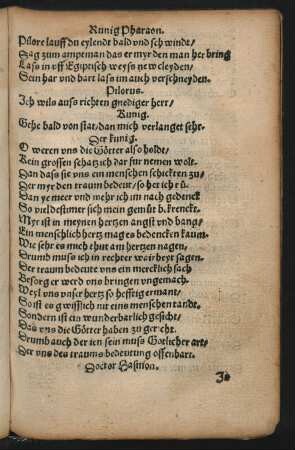 Kunig Pharaon.
Pilore lauff du eylendt bald vnd sch windt/
Sag zum amptman das er myr den man her bring
Lass in vff Egiptisch weyss new cleyden/
Sein har vnd bart lass im auch verschneyden.
Pilorus.
Ich wils auss richten gnediger herr/
Kunig.
Gehe bald von stat/dan mich verlanget sehr.
Der kunig.
O weren vns die Götter also holdt/
Kein grossen schatz ich dar für nemen wolt.
Dan dass sie vns ein menschen schickten zu/
Der myr den traum bedeut/so her ich rů.
Dan ye meer vnd mehr ich im nach gedenck
So vieldestimer sich mein gemüt b. krenckt.
Myr ist in meynen hertzen angst vnd bang/
Ein menschlich hertz mag es bedencken kaum.
Wie sehr es mich thut am hertzen nagen/
Drumb muss ich in rechter warheyt sagen.
Der traum bedeute vns ein mercklich sach
Besorg er werd vns bringen vngemach.
Weyl vns vnser hertz so hefftig ermant/
So ist es gwisslich nit eins menschen tandt.
Sondern ist ein wunderbarlich gesicht/
Das vns die Götter haben zu gericht.
Drumb auch der ien sein muss Götlicher art/
Der vns des traums bedeutung offenbart.
Doctor Hastrion.